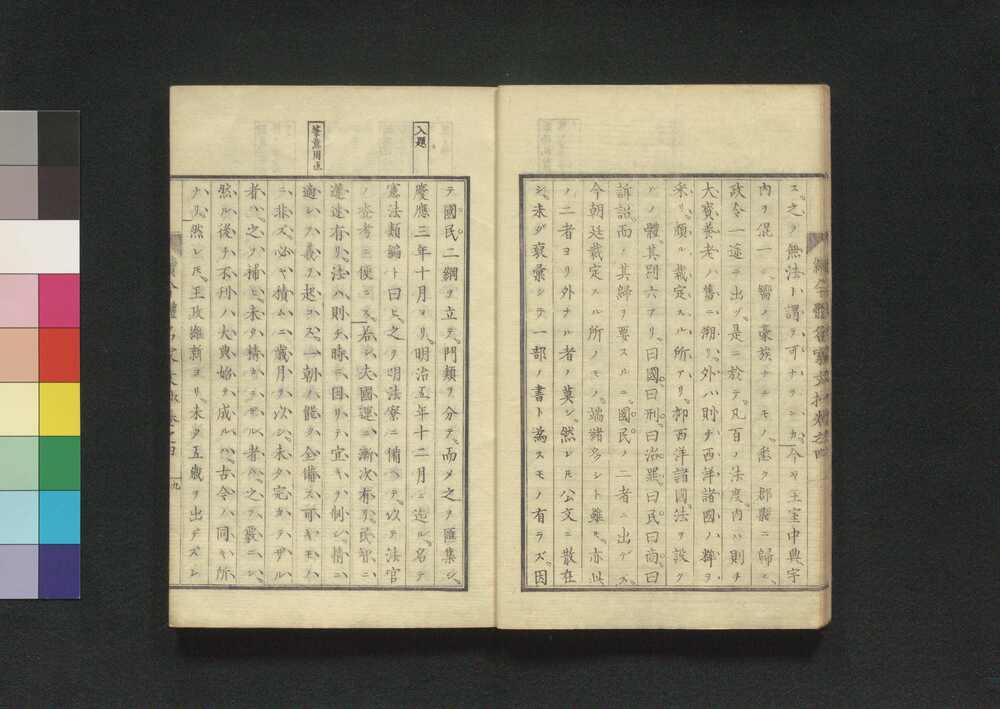 ス。之ヲ無法ト謂ヲ、可ナランカ。今ヤ王室中興宇
内ヲ混一シ、嚮ノ豪族ナルモノ、悉ク郡縣ニ歸シ、
政令一途ニ出ヅ。是ニ於テ、凡百ノ法度、内ハ則チ
大寶養老ノ舊ニ溯リ、外ハ則チ西洋諸國ノ粹ヲ
釆リ、頗ル裁定スル所アリ。抑西洋諸國、法ヲ設ク
ルノ體、其別六アリ。曰國。曰刑。曰治罪。曰民。曰商。曰
訴訟。而シテ其歸ヲ要スルニ、國民ノ二者ニ出デズ。
今朝廷裁定スル所ノモノ、端緒多シト雖モ、亦此
ノ二者ヨリ外ナル者ノ莫シ。然レ𪜈公文ニ散在
シ、未ダ裒彙シテ一部ノ書ト為スモノ有ラズ。因
入題
テ國民二綱ヲ立テ、門類ヲ分テ、而メ之ヲ匯集シ、
慶應三年十月ヨリ、明治五年十二月ニ造ル。名テ
憲法類編ト曰ヒ、之ヲ明法寮ニ備ヘテ、以テ法官
ノ査考ニ便ニス。若シ夫國運ニ漸次有リ、民智ニ
遲速有リ。法ハ則チ時ニ因リテ宜キヲ制シ、情ニ
適シ、ハ義ヲ起コス。一朝ノ能ク全備ス可キモノ
ニ非ズ。必ヤ積ムニ歳月ヲ以シ、未タ完カラザル
者ハ、之ヲ補ヒ、未タ精シカラザル者ハ、之ヲ覈ニシ、
然ル後チ不刋ノ大典、始テ成ル。ハ古今ハ同キ所
ナリ。然レ𪜈、王政維新ヨリ、未タ五歳ヲ出デズシ